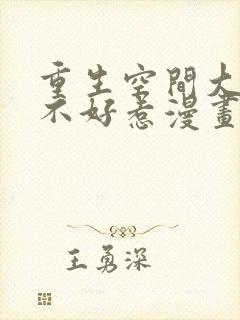 重生空間大
不好惹漫畫
王勇深